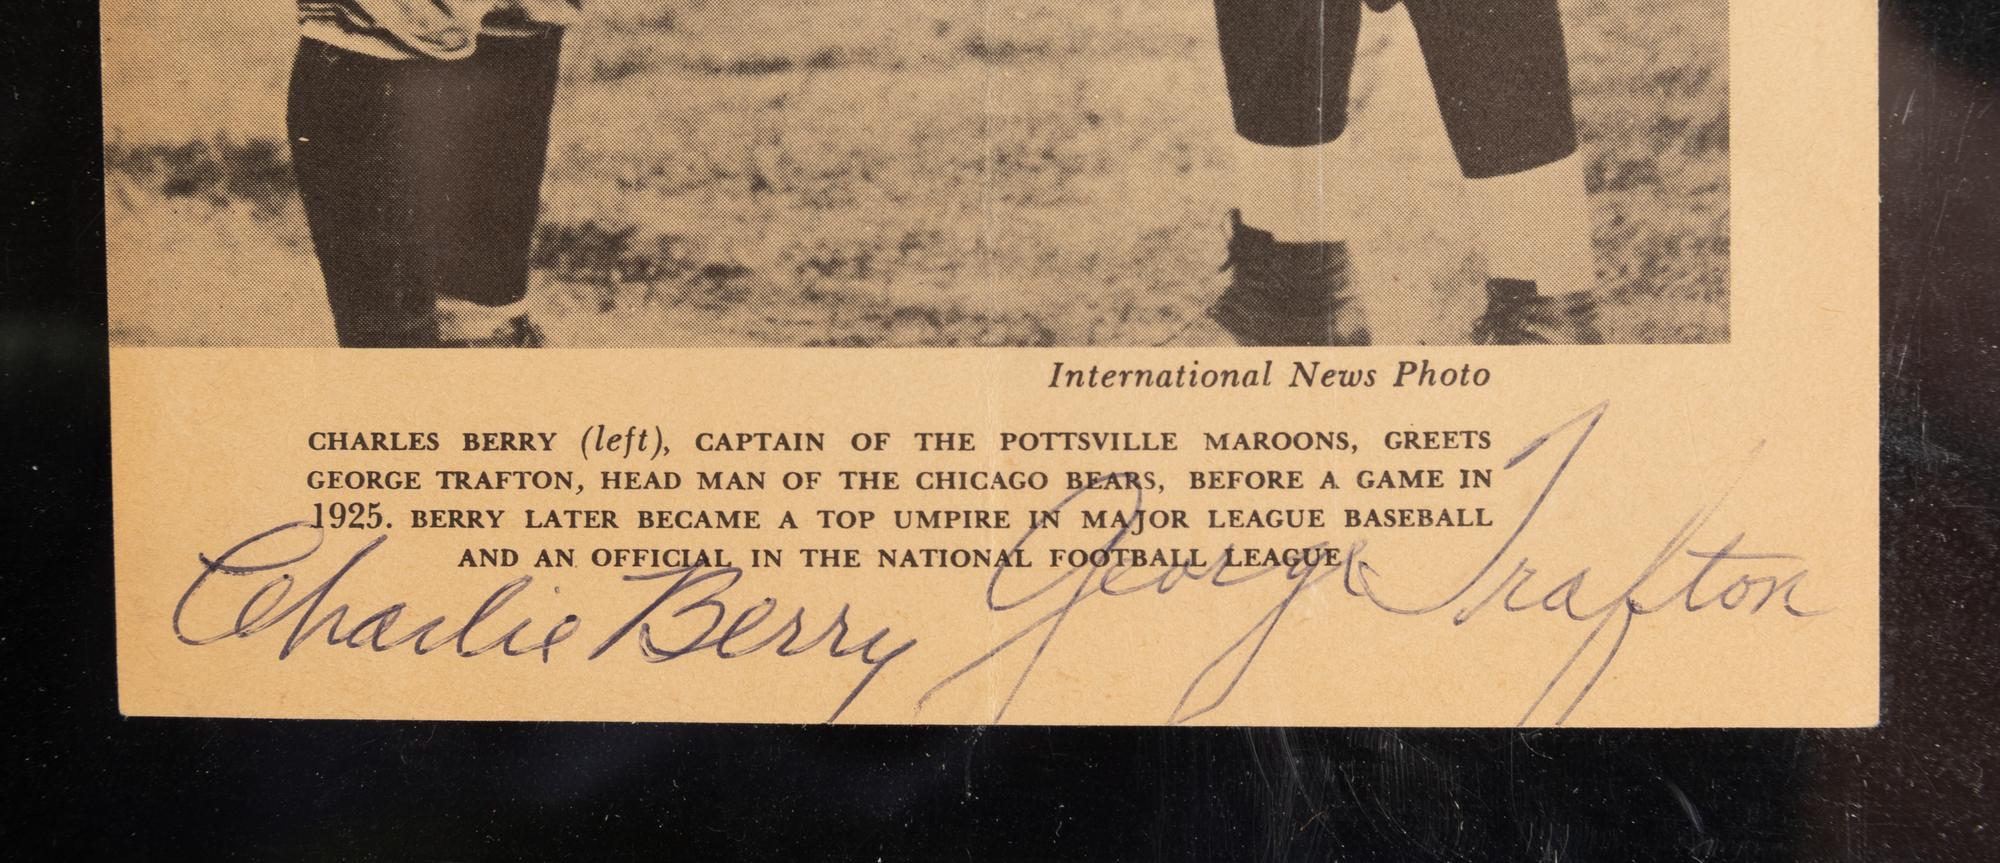 International News Photo
CHARLES BERRY (left), CAPTAIN OF THE POTTSVILLE MAROONS, GREETS
GEORGE TRAFTON, HEAD MAN OF THE CHICAGO BEARS, BEFORE A GAME IN
1925. BERRY LATER BECAME A TOP UMPIRE IN MAJOR LEAGUE BASEBALL
AND AN OFFICIAL IN THE NATIONAL FOOTBALL LEAGUE.
Charlie Berry George Trafton